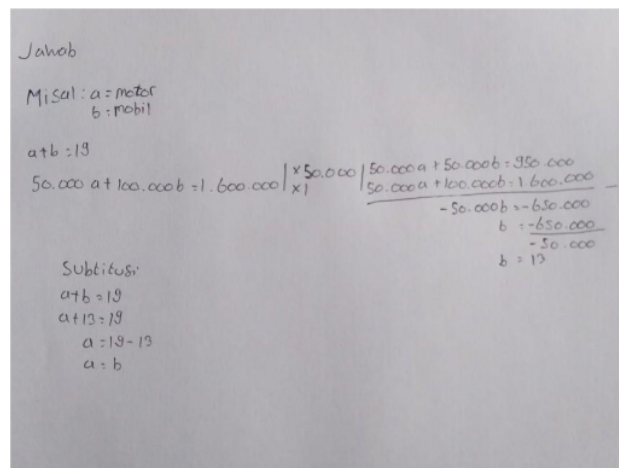 Jawab
Misal : a = motor
b = mobil
a+b = 19
50.000 a + 100.000b = 1.600.000 | x 50.000 | 50.000a + 50.000b = 950.000
x1 | 50.000a + 100.000b = 1.600.000 -
-50.000b = -650.000
b = -650.000
-50.000
b = 13
Subtitusi
a+b = 19
a+13 = 19
a = 19-13
a = 6